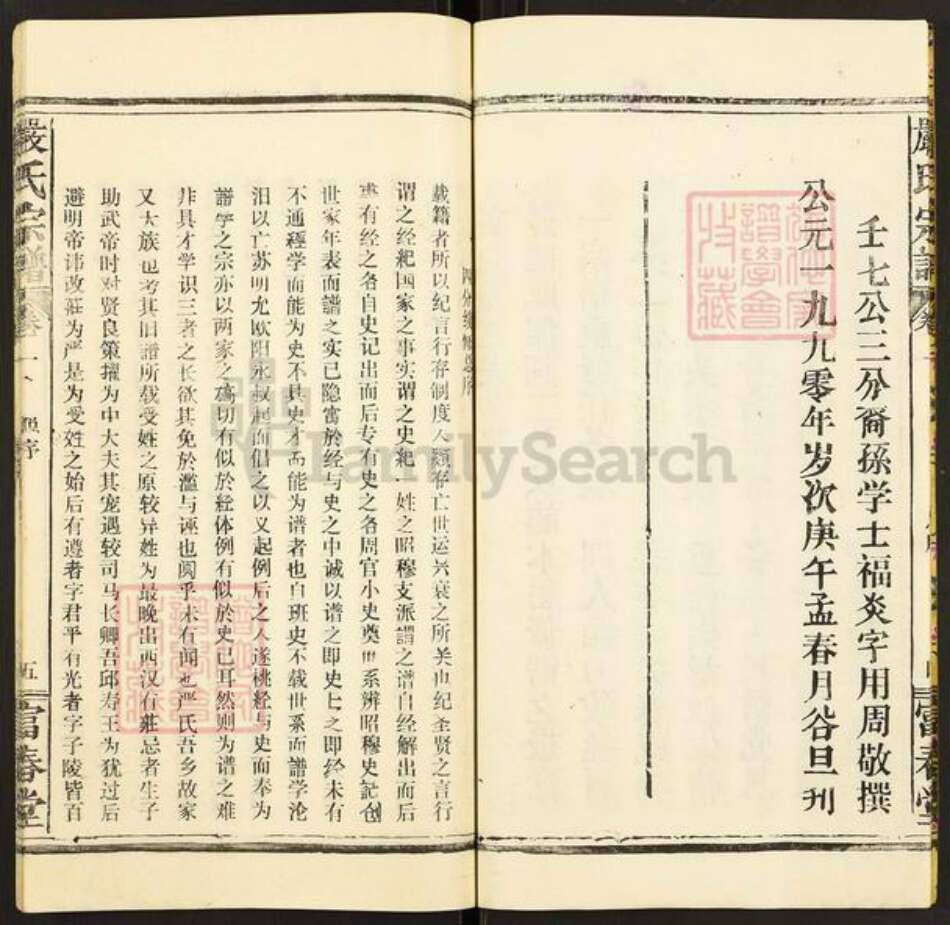 嚴氏宗譜
壬七公三分裔孫学士福炎字用周敬撰
公元一九九零年岁次庚午孟春月谷旦刊
富春堂
載籍者所以纪言行存制度人类存亡世运兴衰之所关也纪圣贤之言行
谓之经纪国家之事实谓之史纪一姓之昭穆支派謂之谱自经解出而后
書有经之名自史记出而后专有史之名周官小史奠世系辨昭穆史記创
世家年表而譜之实已隐寓於经与史之中诚以谱之即史上之即经未有
不通經学而能为史不具史才而能为谱者也自班史不载世系而譜学沦
汨以亡苏明允欧阳永叔起而倡之以义起例后之人遂桃經与史而奉为
譜学之宗亦以两家之 切有似於經体例有似於史已耳然则为谱之难
非具才学识三者之长欲其免於滥与诬也阅乎未有闻也严氏吾乡故家
又大族也考其旧譜所载受姓之原较异姓为最晚出西汉有莊忌者生子
助武帝时对贤良策擢为中大夫其宠遇较司马长卿吾邱寿王为犹过后
避明帝讳改莊为严是为受姓之始后有遵者字君平有光者字子陵皆百
嚴氏宗譜
卷一
序
五
富春堂
FamilySearch